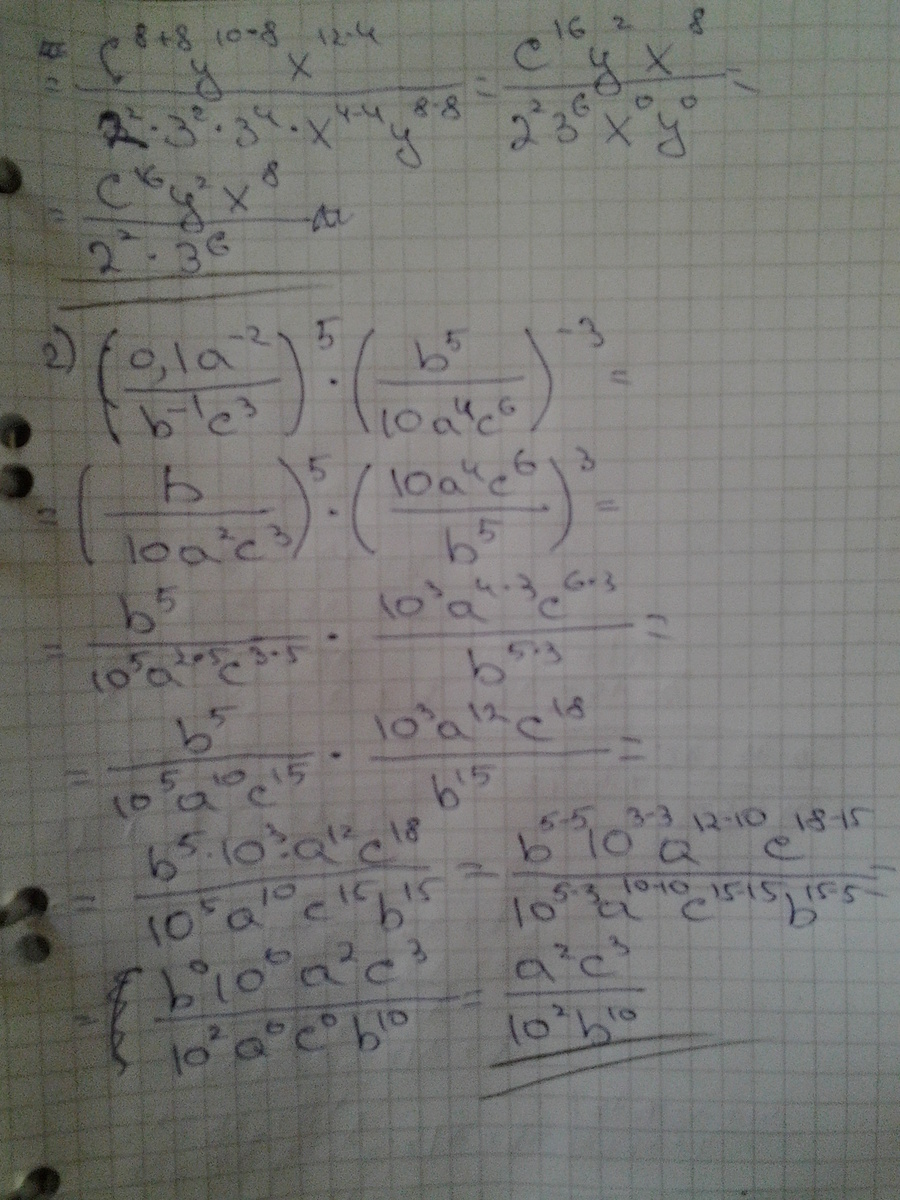 = \frac{c^{8+8} y^{10-8} x^{12-4}}{2^2 \cdot 3^2 \cdot 3^4 \cdot x^{4-4} y^{8-8}} = \frac{c^{16} y^2 x^8}{2^2 3^6 x^0 y^0} =
= \frac{c^{16} y^2 x^8}{2^2 \cdot 3^6}
2) \left( \frac{0,1a^{-2}}{b^{-1}c^3} \right)^5 \cdot \left( \frac{b^5}{10a^4c^6} \right)^{-3} =
= \left( \frac{b}{10a^2c^3} \right)^5 \cdot \left( \frac{10a^4c^6}{b^5} \right)^3 =
= \frac{b^5}{10^5a^{2 \cdot 5}c^{3 \cdot 5}} \cdot \frac{10^3a^{4 \cdot 3}c^{6 \cdot 3}}{b^{5 \cdot 3}} =
= \frac{b^5}{10^5a^{10}c^{15}} \cdot \frac{10^3a^{12}c^{18}}{b^{15}} =
= \frac{b^5 \cdot 10^3 \cdot a^{12}c^{18}}{10^5a^{10}c^{15}b^{15}} = \frac{b^{5-5}10^{3-3}a^{12-10}c^{18-15}}{10^{5-3}a^{10-10}c^{15-15}b^{15-5}} =
= \frac{b^0 10^0 a^2 c^3}{10^2 a^0 c^0 b^{10}} = \frac{a^2c^3}{10^2b^{10}}